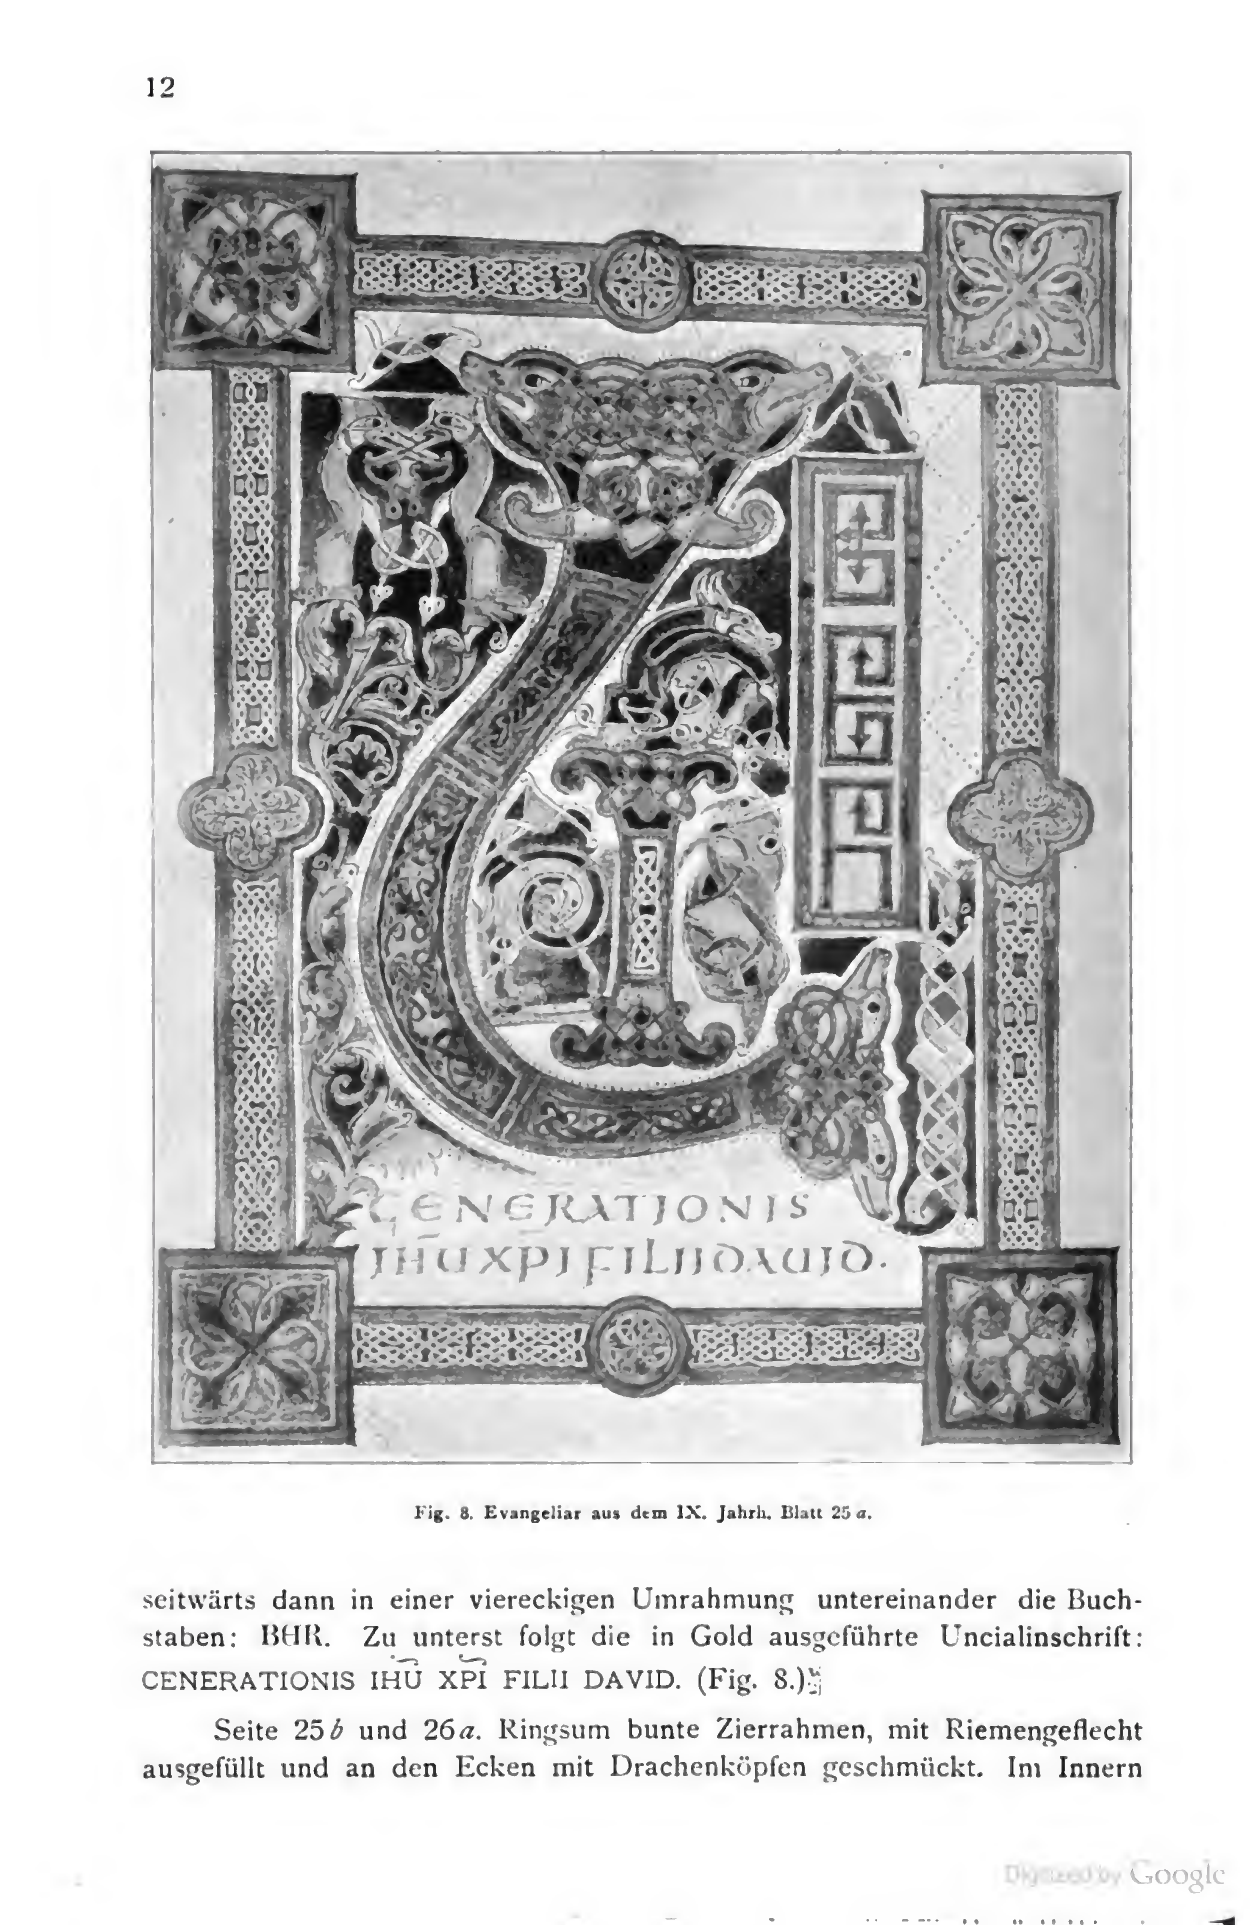 12
GENERATIONIS
IHU XPI FILII DAUID.
Fig. 8. Evangeliar aus dem IX. Jahrh. Blatt 25 a.
seitwärts dann in einer viereckigen Umrahmung untereinander die Buch-
staben: BHR. Zu unterst folgt die in Gold ausgeführte Uncialinschrift:
GENERATIONIS IHU XPI FILII DAVID. (Fig. 8.)
Seite 25 b und 26 a. Ringsum bunte Zierrahmen, mit Riemengeflecht
ausgefüllt und an den Ecken mit Drachenköpfen geschmückt. Im Innern
Digitized by Google